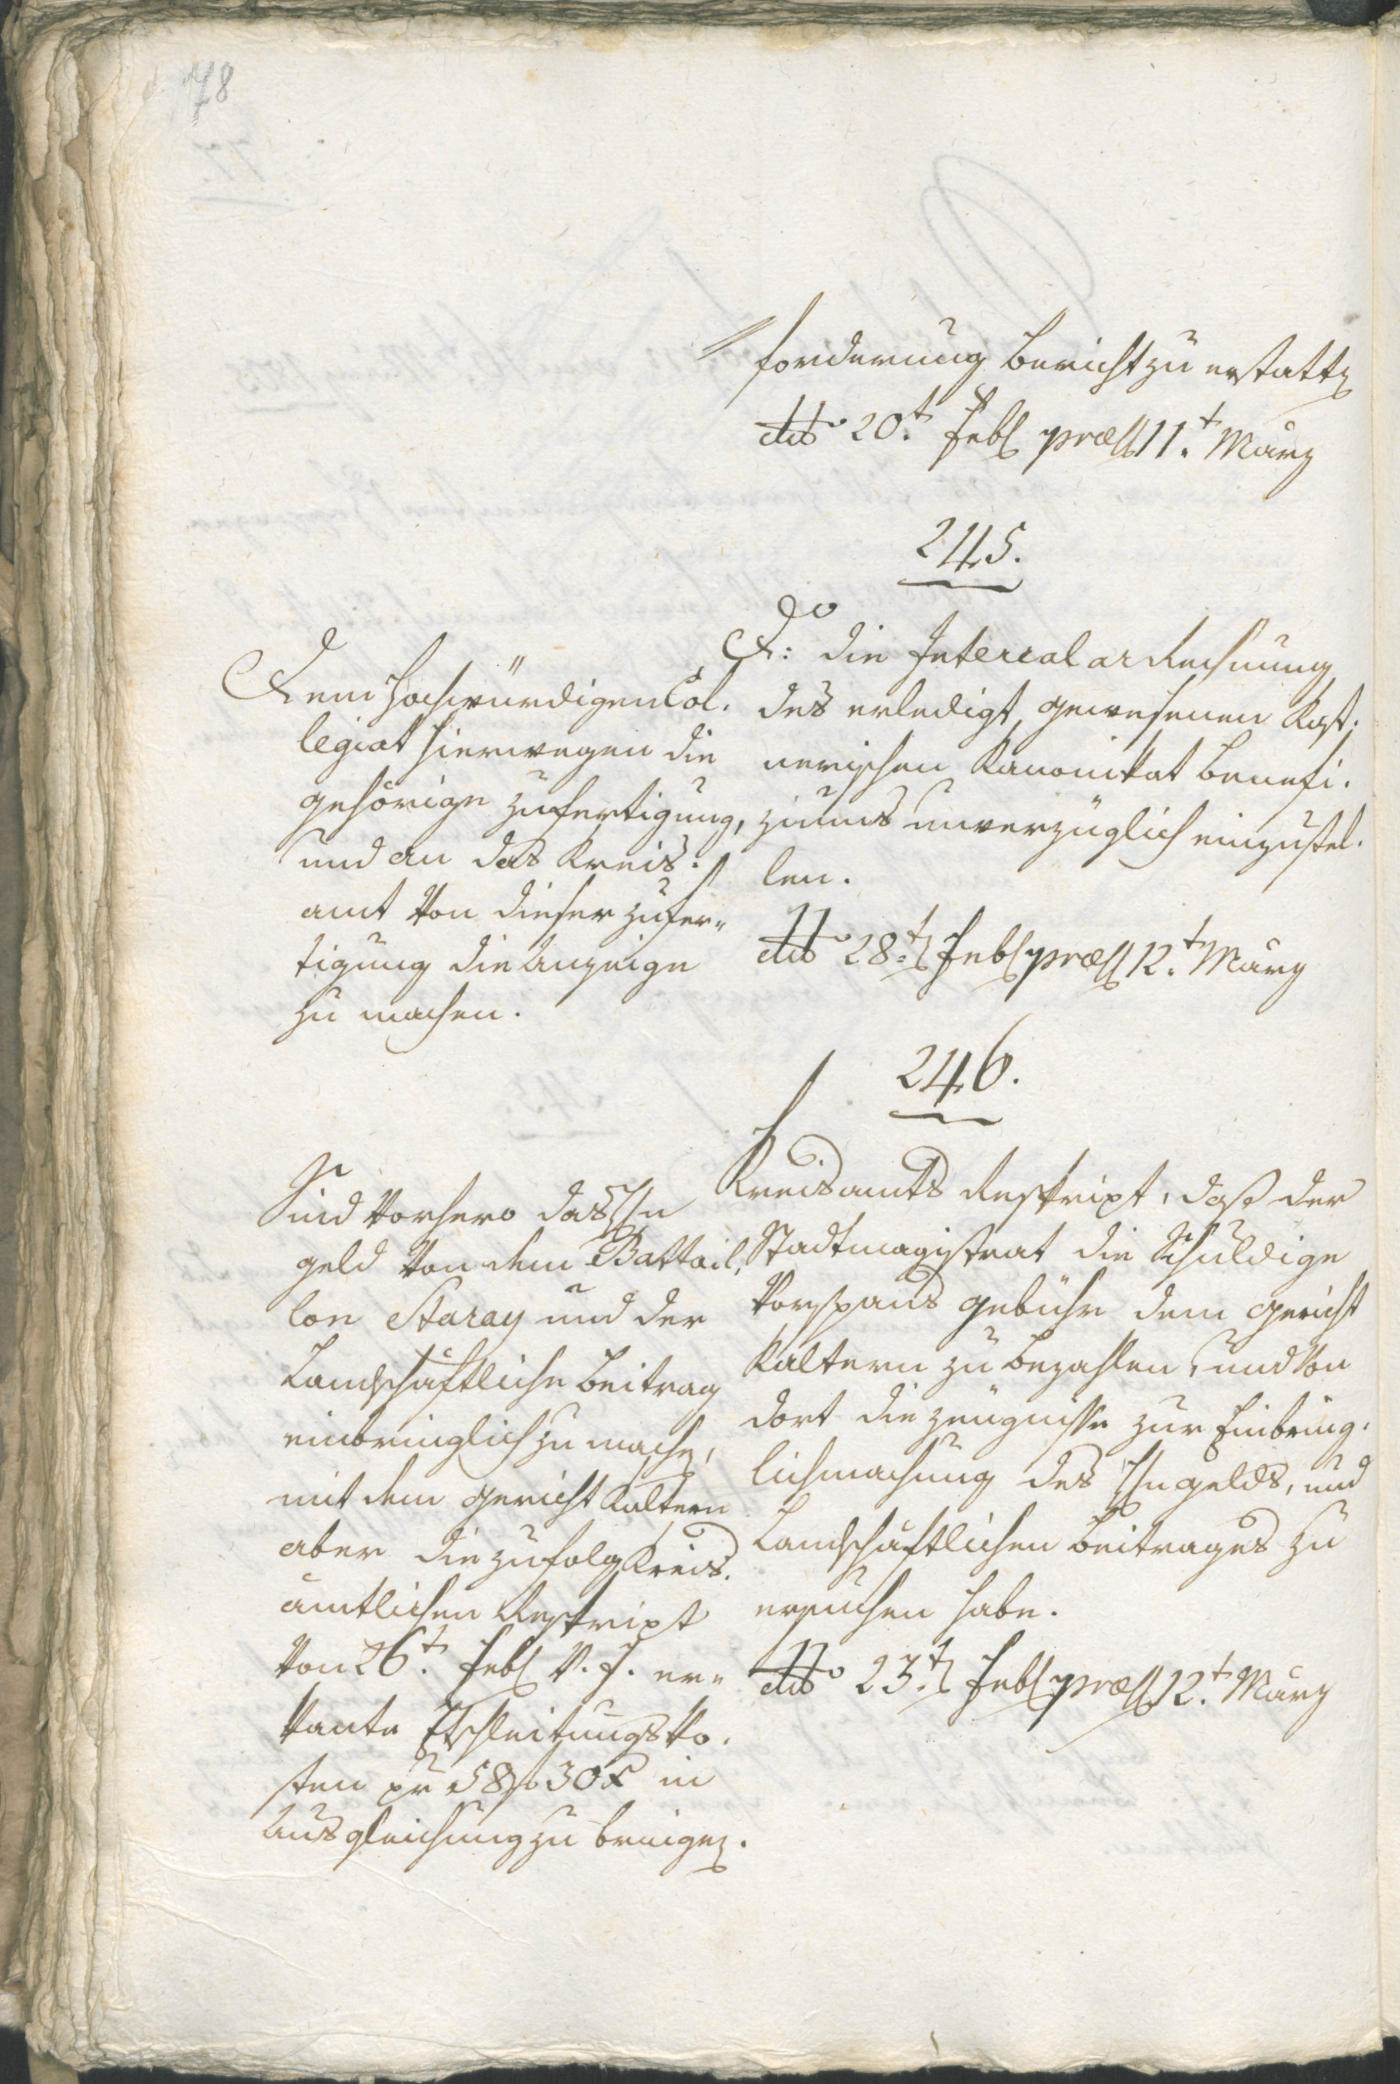 78
forderung bericht zu erstatten
dto 20.t Febl præss 11.t März
245.
Do
Dem Hochwürdigen Col-
legiat hierwegen die
gehörige zufertigung,
und an das Kreis-
amt von dieser zufer-
tigung die Anzeige
zu machen.
A: die Intercalar Rechnung
des erledigt gewesenen Kast-
nerischen Kanonikat Benefi-
ziums unverzüglich einzustel-
len.
dto 28.t Febl præss 12.t März
246.
Sind vorhero das
geld von dem Battail-
lon Staray und der
Landschaftliche Beitrag
einbringlich zu machen,
mit dem Gericht Kaltern
aber die zufolg Kreis-
ämtlichen Reskript
von 26.t Febl v. J. er-
kante ko-
sten pr 58 f 30 x in
Ausgleichung zu bringen.
Kreisamts Reskript, daß der
Stadtmagistrat die Schuldige
Vorspans gebühr dem Gericht
Kaltern zu bezahlen, und von
dort die zeugnisse zur Einbring-
lichmachung des gelds, und
Landschaftlichen Beitrages zu
ersuchen habe.
dto 23.t Febl præss 12.t März